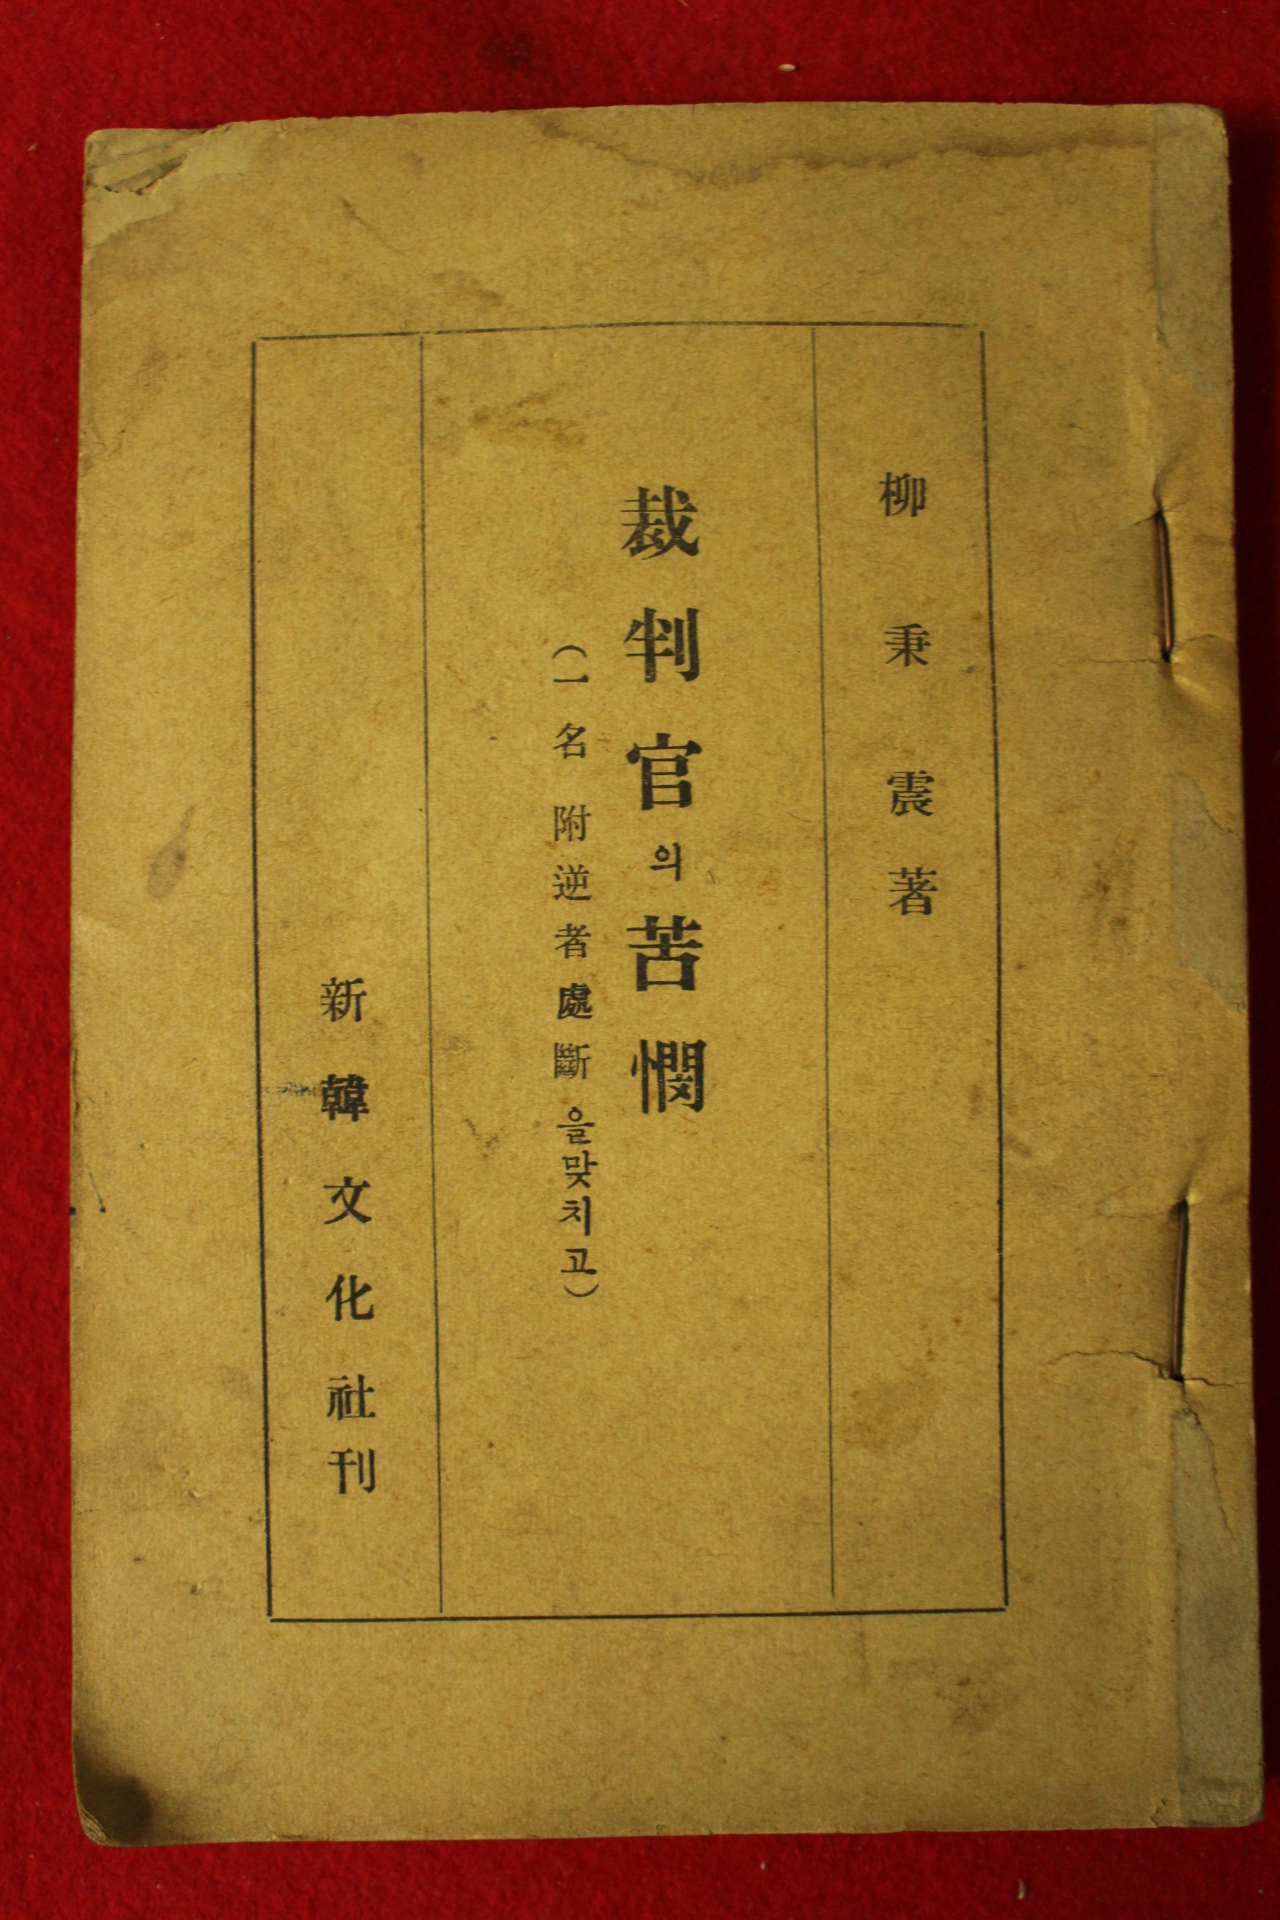 柳秉震著
裁判官의苦憫
(一名 附逆者處斷을맞치고)
新韓文化社刊